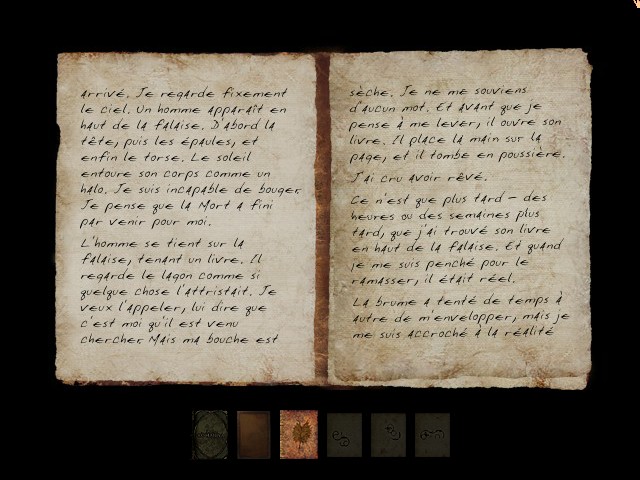 arrivé. Je regarde fixement
le ciel. Un homme apparaît en
haut de la falaise. D'abord la
tête, puis les épaules, et
enfin le torse. Le soleil
entoure son corps comme un
halo. Je suis incapable de bouger.
Je pense que la Mort a fini
par venir pour moi.
L'homme se tient sur la
falaise, tenant un livre. Il
regarde le lagon comme si
quelque chose l'attristait. Je
veux l'appeler, lui dire que
c'est moi qu'il est venu
chercher Mais ma bouche est
sèche. Je ne me souviens
d'aucun mot. Et avant que je
pense à me lever, il ouvre son
livre. Il place la main sur la
page, et il tombe en poussière.
J'ai cru avoir rêvé.
Ce n'est que plus tard – des
heures ou des semaines plus
tard, que j'ai trouvé son livre
en haut de la falaise. Et quand
je me suis penché pour le
ramasser, il était réel.
La brume a tenté de temps à
autre de m'envelopper, mais je
me suis accroché à la réalité